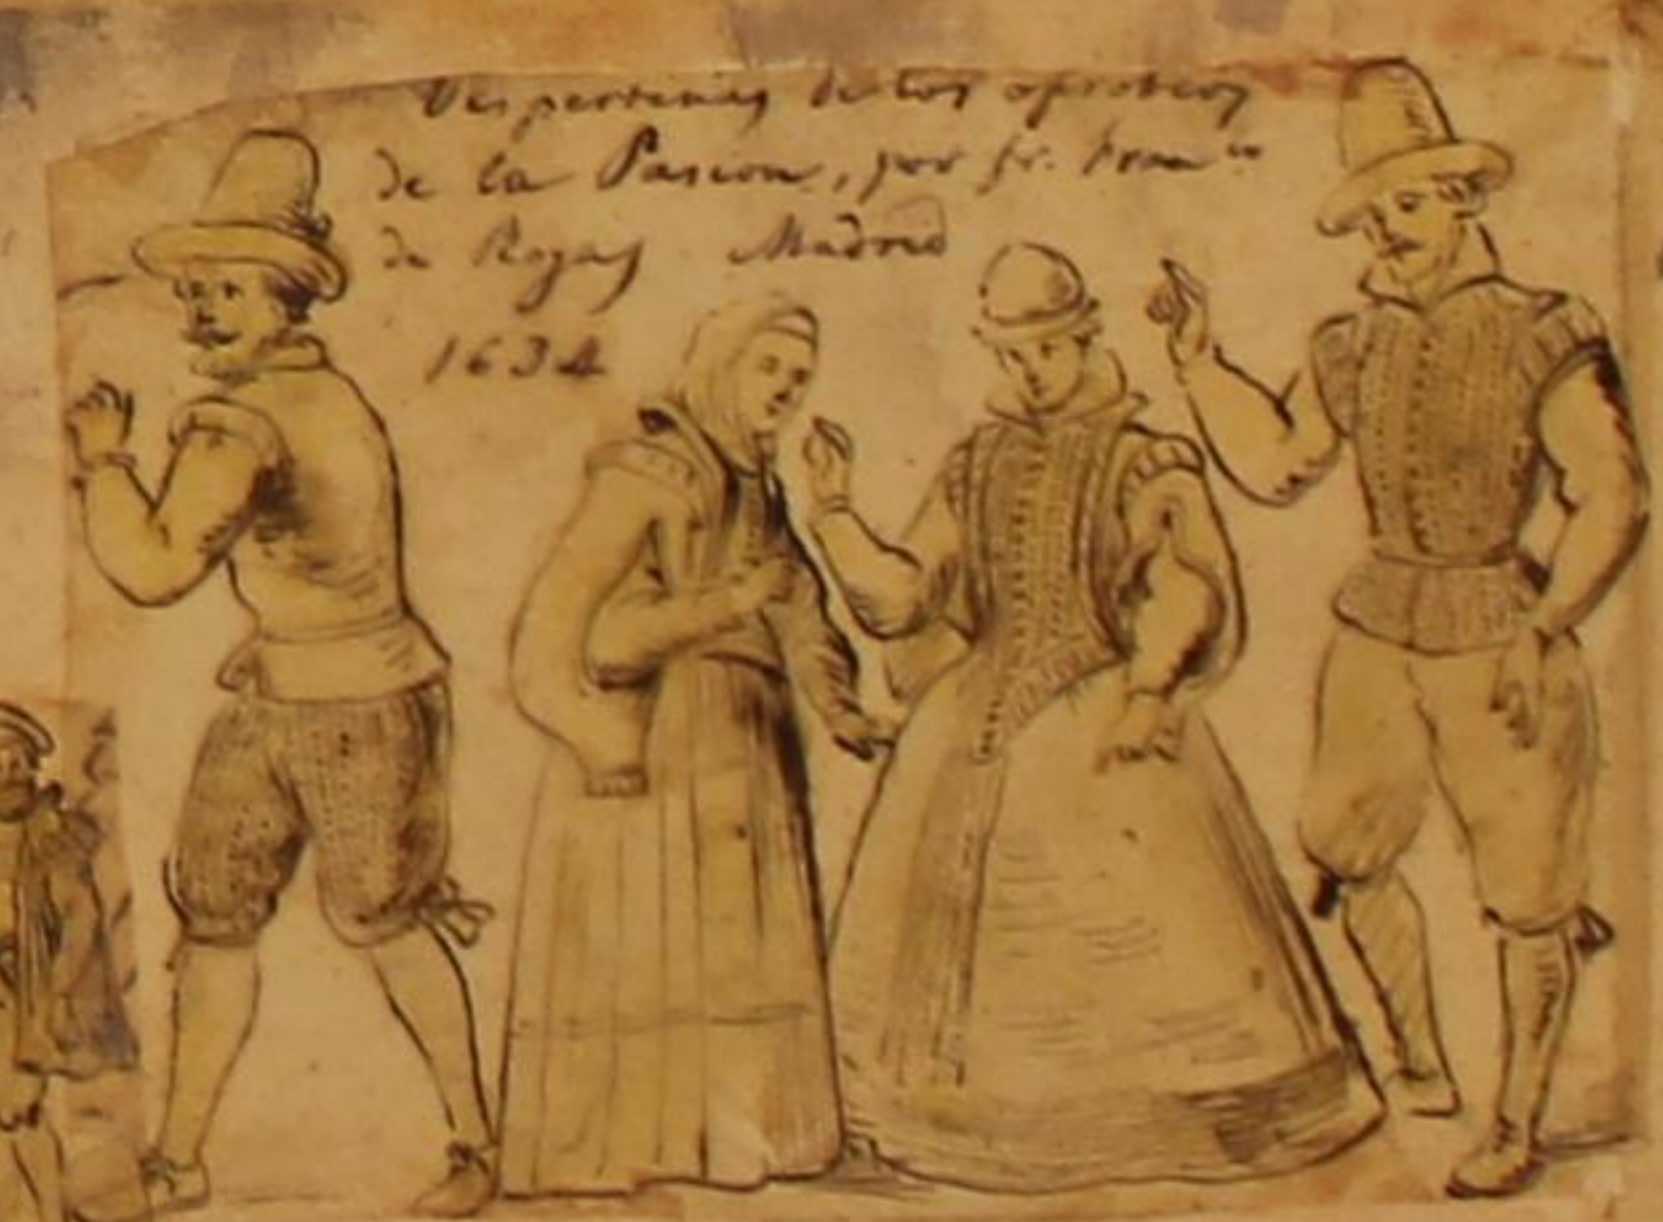 Vespertinas de los oprobios
de la Pasion, por fr. Fran^co
de Rojas Madrid
1634